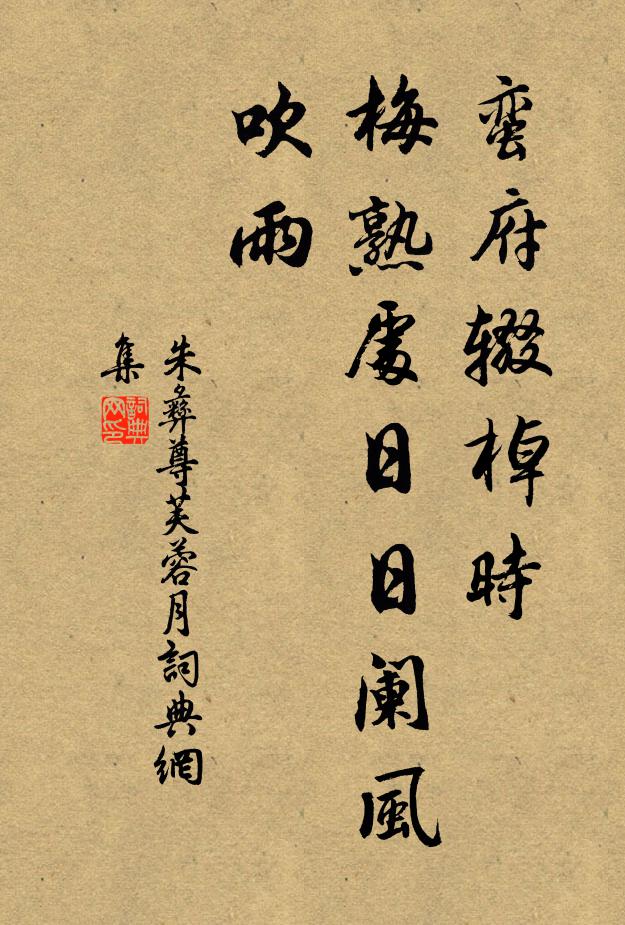 蛮府辍棹時
梅熟處日日阑風
吹雨
朱彝尊芙蓉月詞典網
集
詞典
网印